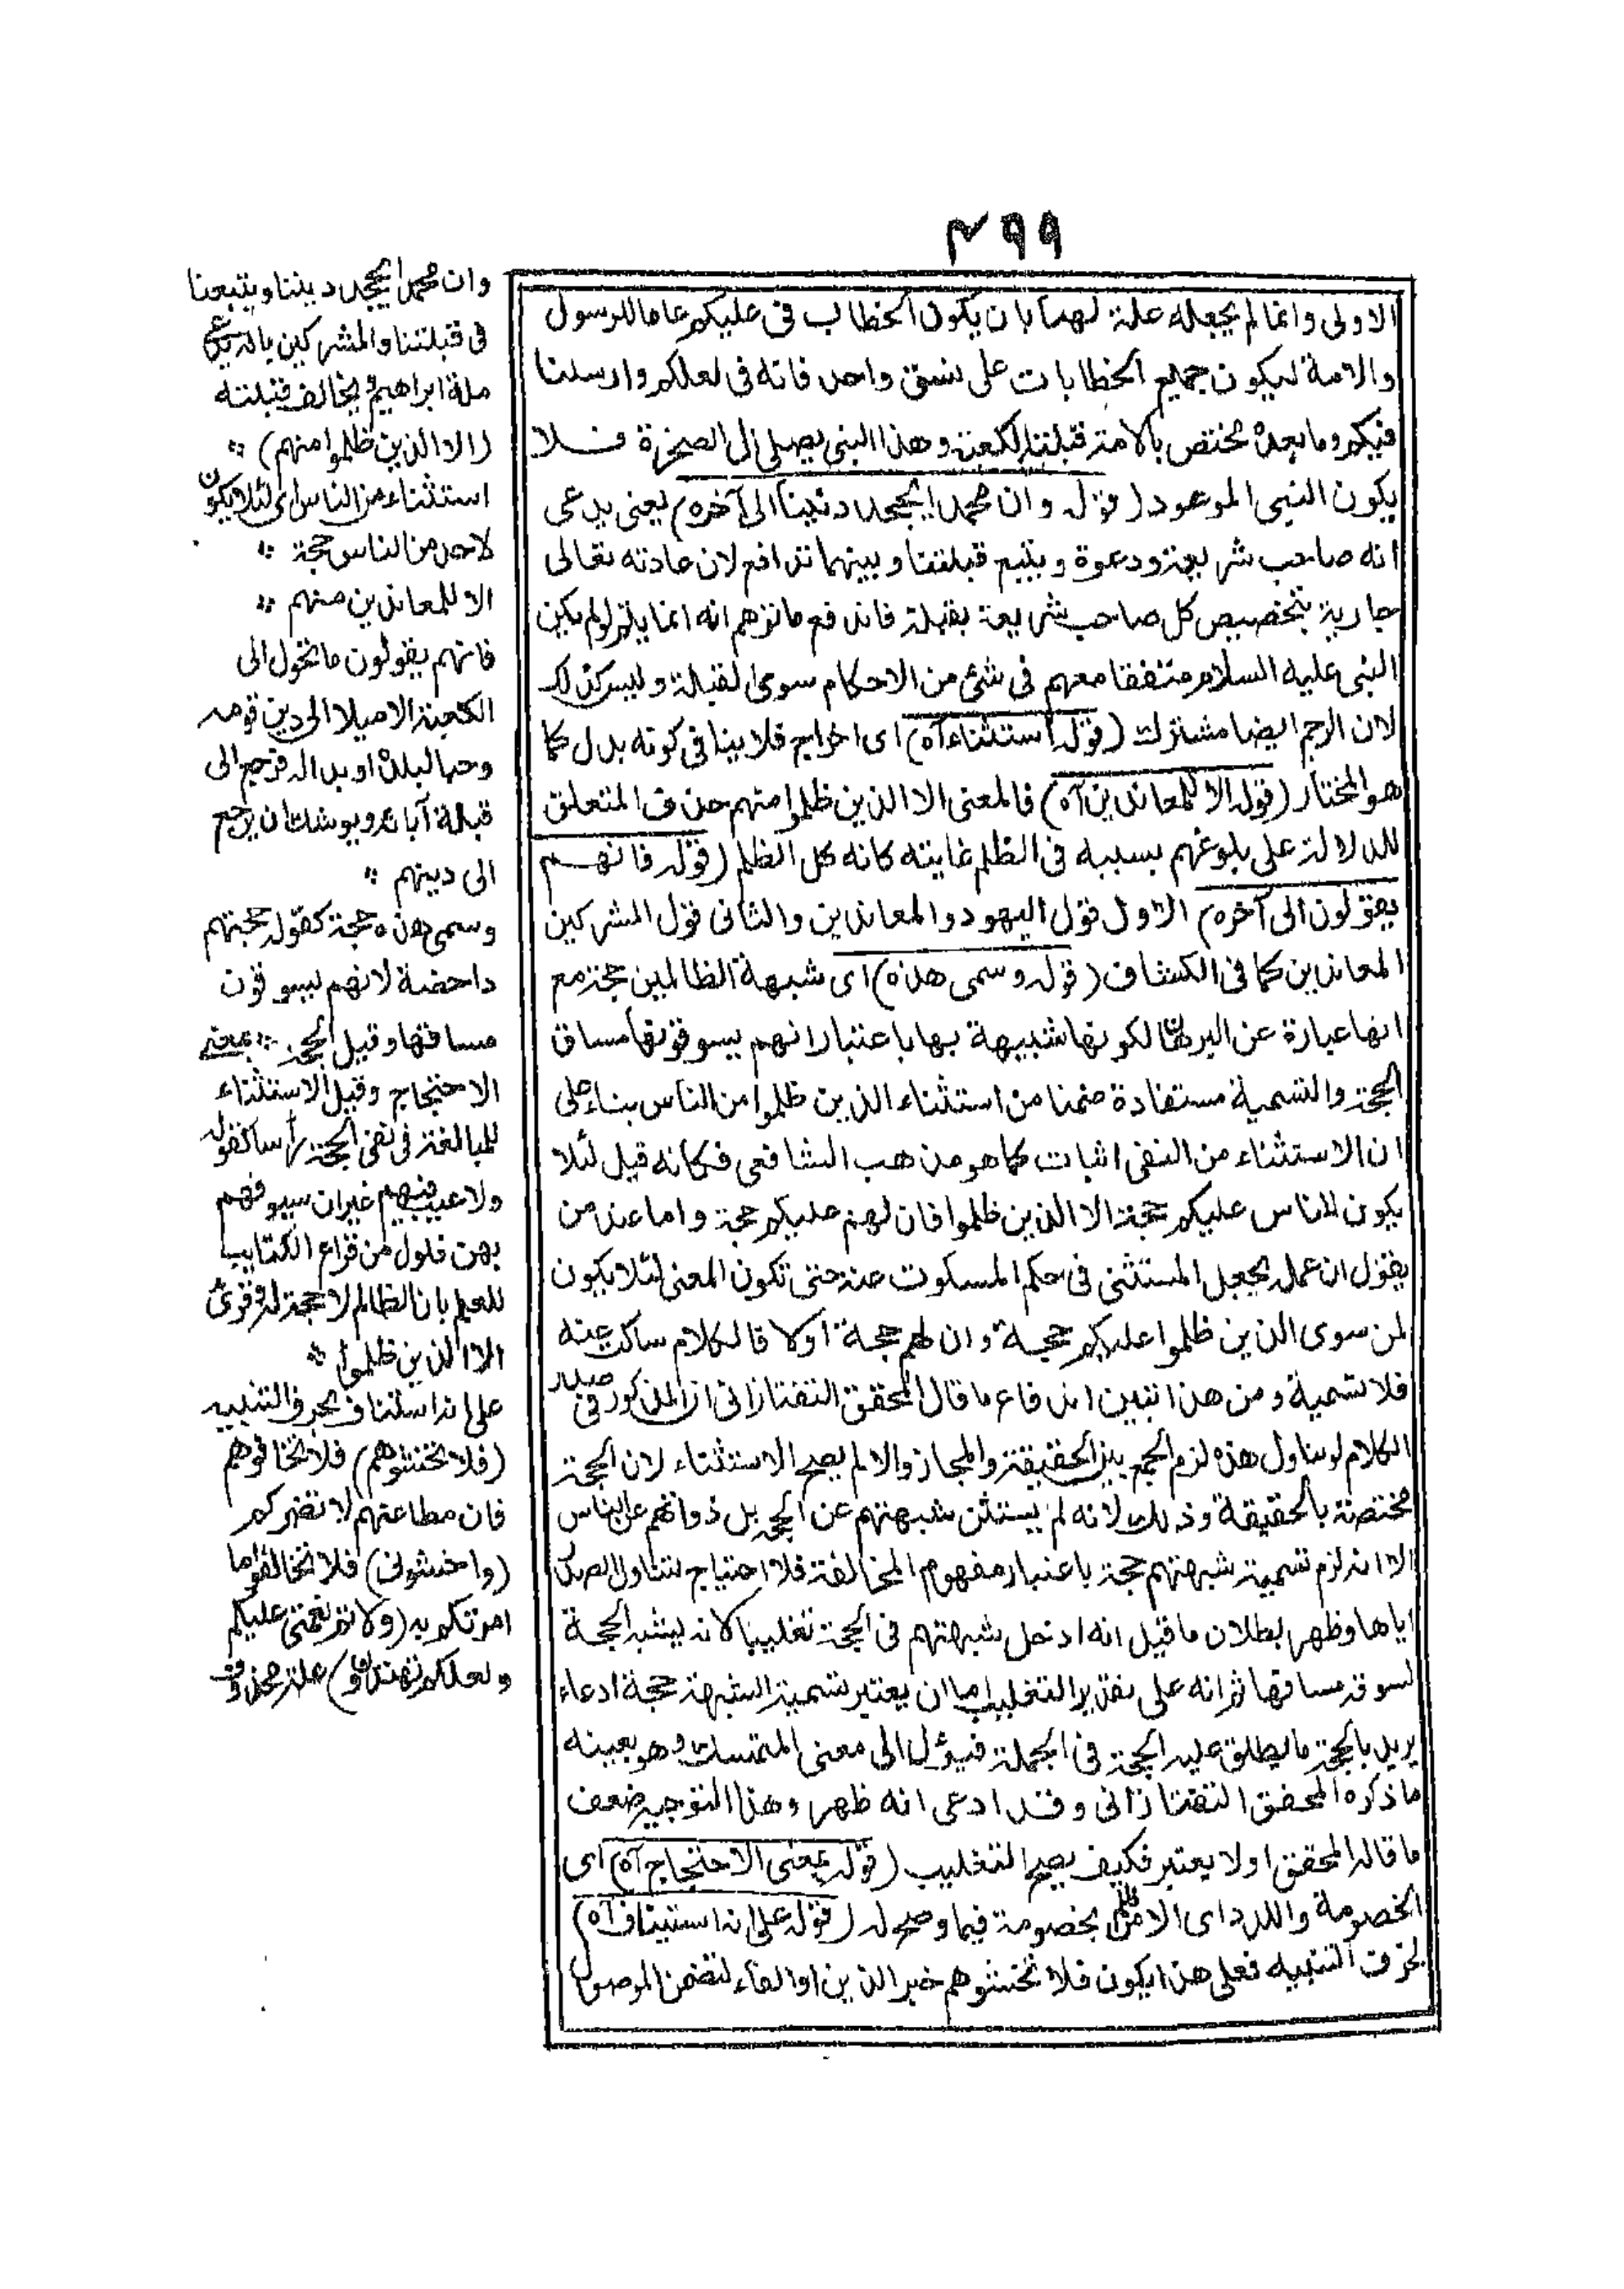 ٤٩٩
الاولى وانما لم يجعله علة لهما بان يكون الخطاب فى عليكم عاما للرسول
والامة ليكون جميع الخطابات على نسق واحد فانه فى لعلكم وارسلنا
فيكم وما بعده مختص بالامة قبلتنا الكعبة وهذا النبى يصلى الى الصخرة فلا
يكون النبى الموعود (قوله وان محمدا يجحد ديننا الى آخره) يعنى يدعى
انه صاحب شريعة ودعوة ويتبع قبلتنا وبينهما تدافع لان عادته تعالى
جارية بتخصيص كل صاحب شريعة بقبلة فاندفع ما توهم انه انما يلزم لو لم يكن
النبى عليه السلام متفقا معهم فى شئ من الاحكام سوى القبلة وليس كذلك
لان الرجم ايضا مشترك (قوله استثناء آه) اى اخراج فلا ينافى كونه بدل كما
هو المختار (قوله الا للمعاندين آه) فالمعنى الا الذين ظلموا منهم حذف المتعلق
للدلالة على بلوغهم بسببه فى الظلم غايته كانه كل الظلم (قوله فانهم
يقولون الى آخره) الاول قول اليهود والمعاندين والثانى قول المشركين
المعاندين كما فى الكشاف (قوله وسمى هذه) اى شبهة الظالمين حجة مع
انها عبارة عن البرهان لكونها شبيهة بها باعتبار انهم يسوقونها مساق
الحجة والتسمية مستفادة ضمنا من استثناء الذين ظلموا من الناس بناء على
ان الاستثناء من النفى اثبات كما هو مذهب الشافعى فكانه قيل لئلا
يكون للناس عليكم حجة الا الذين ظلموا فان لهم عليكم حجة واما عند من
يقول ان عمله يجعل المستثنى فى حكم المسكوت عنه حتى تكون المعنى لئلا يكون
لمن سوى الذين ظلموا عليكم حجة وان لهم حجة اولا فالكلام ساكت عنه
فلا تسمية ومن هذا تبين اندفاع ما قال المحقق التفتازانى ان المذكور فى صدر
الكلام لو تناول هذه لزم الجمع بين الحقيقة والمجاز والا لم يصح الاستثناء لان الحجة
مختصة بالحقيقة وذلك لانه لم يستثن شبهتهم عن الحجة بل ذواتهم عن الناس
الا انه لزم تسمية شبهتهم حجة باعتبار مفهوم المخالفة فلا احتياج لتناول الصدر
اياها وظهر بطلان ما قيل انه ادخل شبهتهم فى الحجة تغليبا لانه يشبه الحجة
لسوقه مساقها ثم انه على تقدير التغليب اما ان يعتبر تسمية الشبهة حجة ادعاء
يريد بالحجة ما يطلق عليه الحجة فى الجملة فيؤل الى معنى المتمسك وهو بعينه
ما ذكره المحقق التفتازانى وقد ادعى انه ظهر وهذا التوجيه ضعف
ما قاله المحقق اولا يعتبر فكيف يصح التغليب (قوله بمعنى الاحتجاج آه) اى
الخصومة واللدد اى الا من ظلم بخصومة فيما وضح له (قوله على انه استيناف آه)
بحرف التنبيه فعلى هذا يكون فلا تخشوهم خبر الذين اوالفاء لتضمن الموصول
وان محمدا يجحد ديننا ويتبعنا
فى قبلتنا والمشركين بانه يدعى
ملة ابراهيم ويخالف قبلته
(الا الذين ظلموا منهم) ؞
استثناء من الناس اى لئلا يكون
لاحد من الناس حجة ؞
الا للمعاندين منهم ؞
فانهم يقولون ما تحول الى
الكعبة الا ميلا الى دين قومه
وحبا لبلده او بدا له فرجع الى
قبلة آبائه ويوشك ان يرجع
الى دينهم ؞
وسمى هذه حجة كقوله حجتهم
داحضة لانهم يسوقون
مساقها وقيل الحجة ؞ بمعنى
الاحتجاج وقيل الاستثناء
للمبالغة فى نفى الحجة رأسا كقوله
ولا عيب فيهم غير ان سيوفهم
بهن فلول من قراع الكتايب
للعلم بان الظالم لا حجة له وقرئ
الا الذين ظلموا ؞
على انه استيناف بحرف التنبيه
(فلا تخشوهم) فلا تخافوهم
فان مطاعنهم لا تضركم
(واخشونى) فلا تخالفوا ما
امرتكم به (ولاتم نعمتى عليكم
ولعلكم تهتدون) علة محذوف